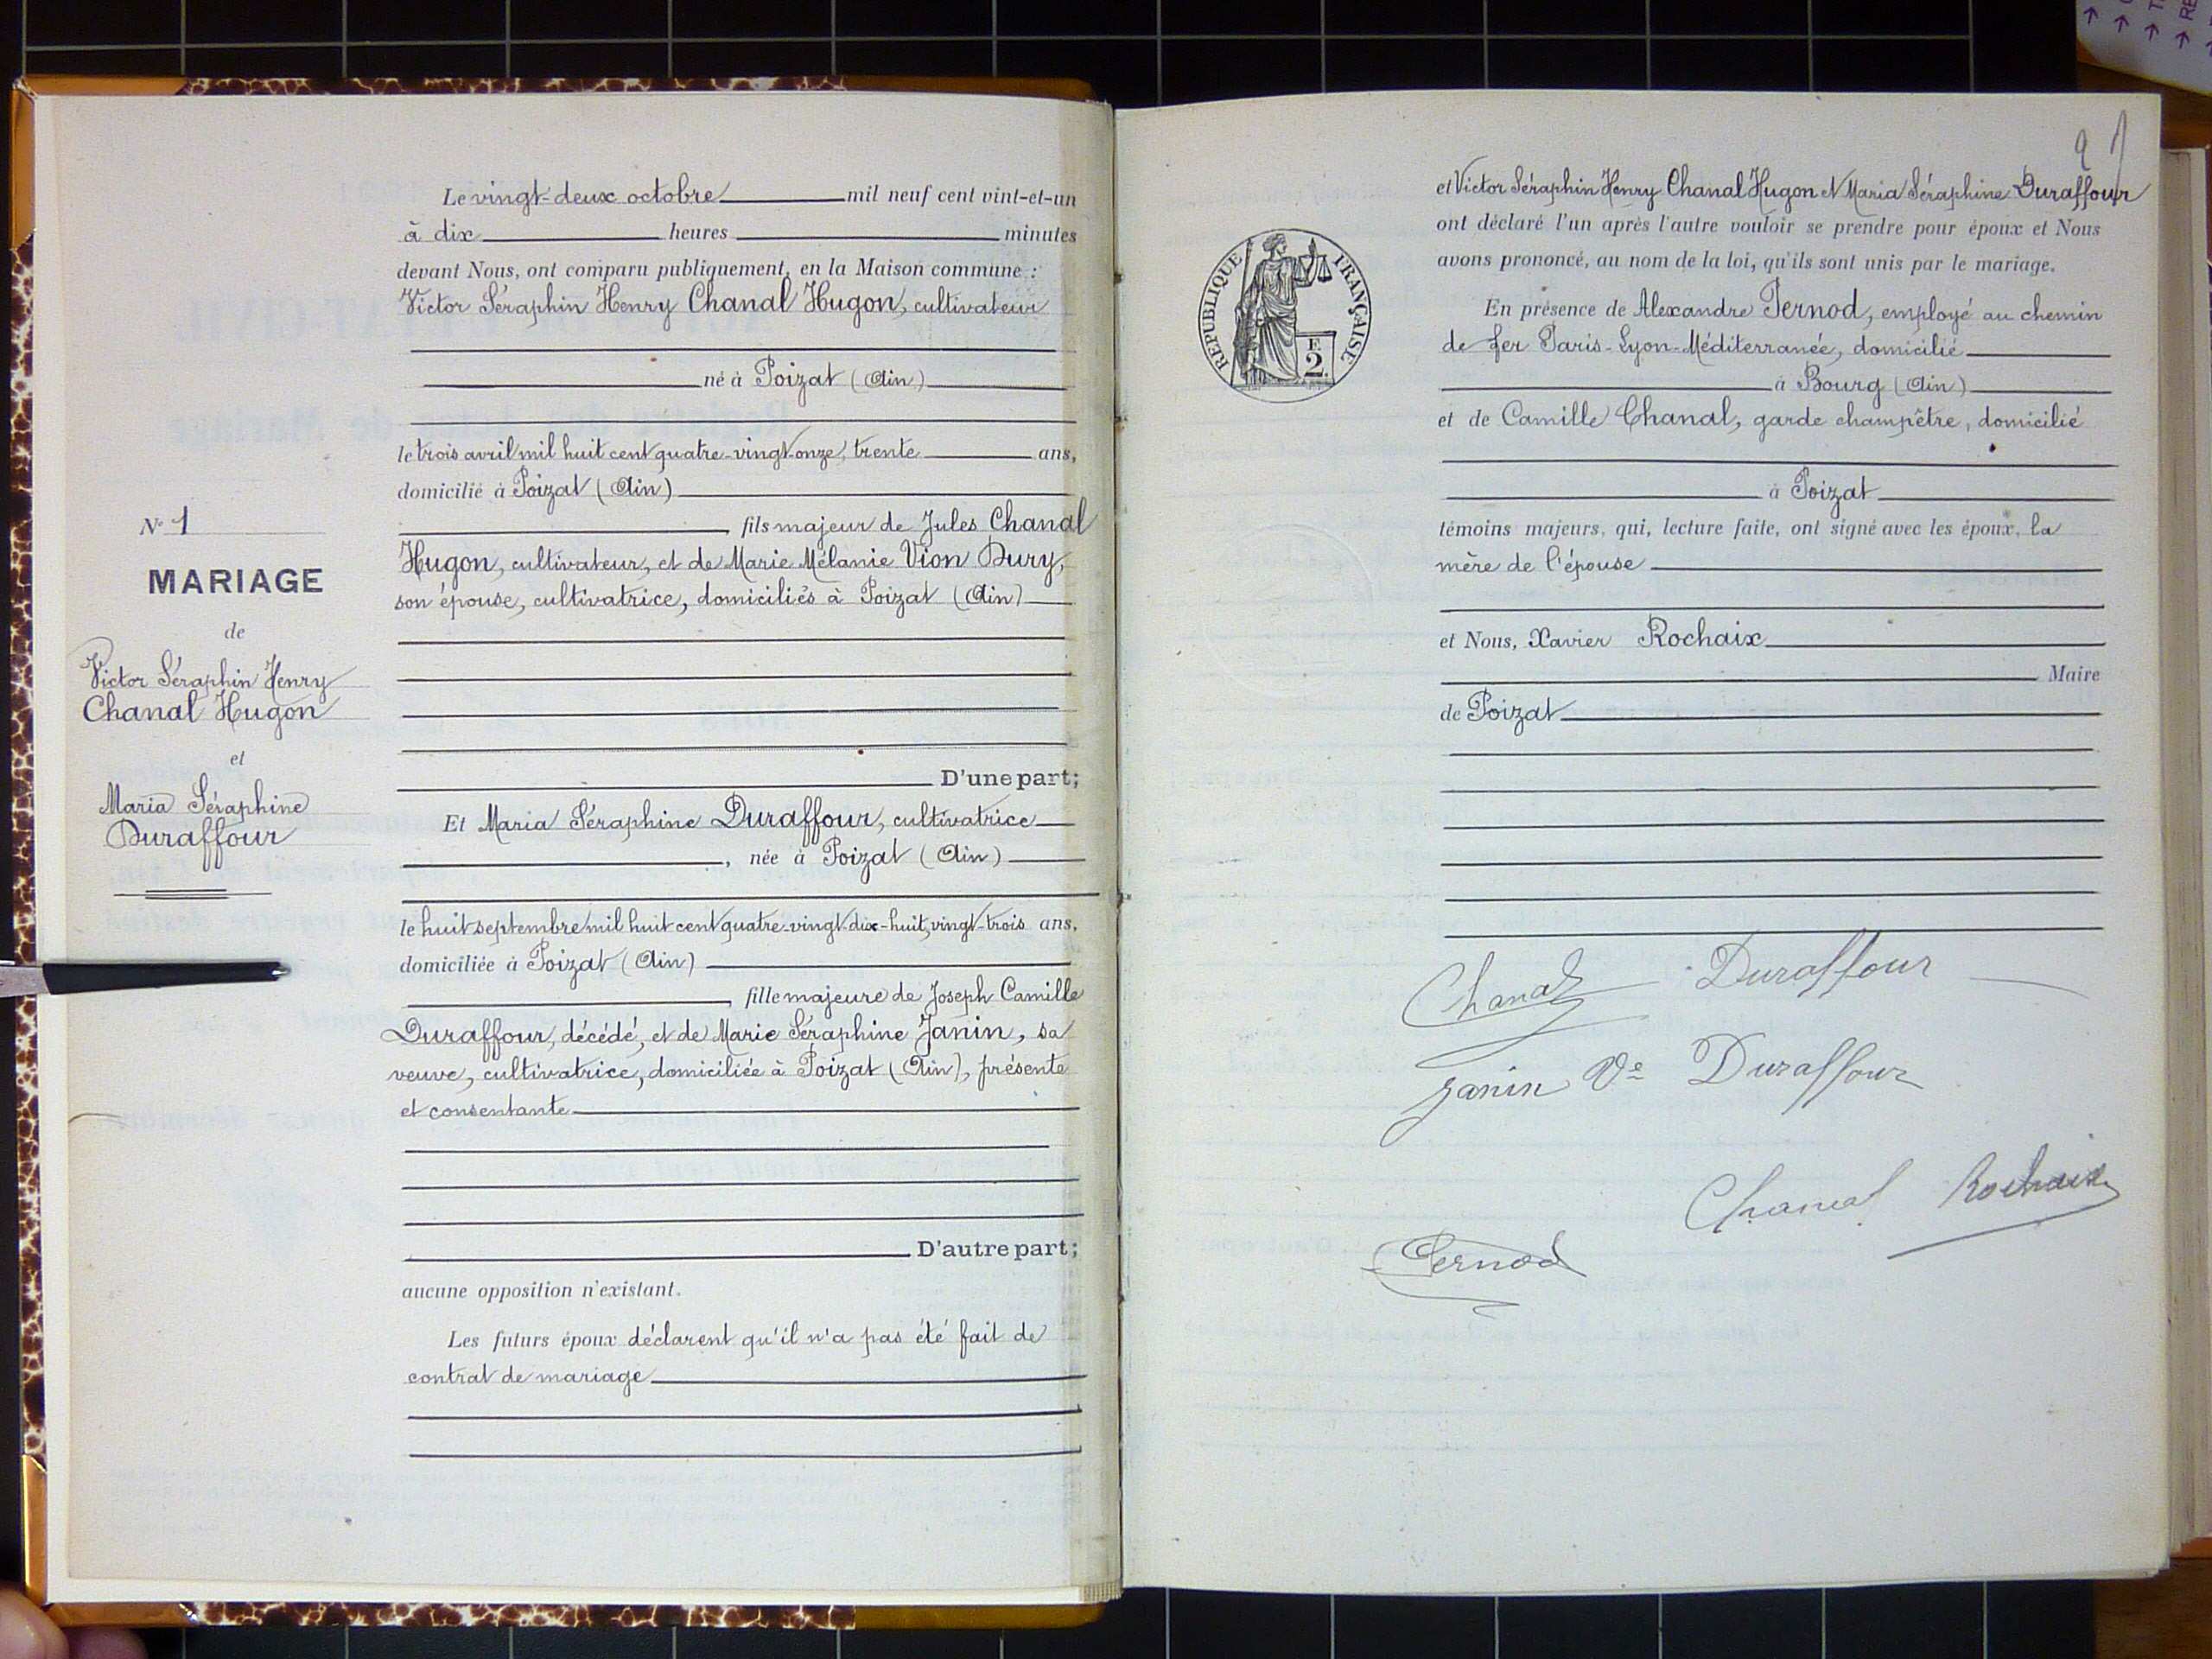 N° 1
MARIAGE
de
Victor Séraphin Henry
Chanal Hugon
et
Maria Séraphine
Duraffour
Le vingt-deux octobre mil neuf cent vint-et-un
à dix heures minutes
devant Nous, ont comparu publiquement, en la Maison commune :
Victor Séraphin Henry Chanal Hugon, cultivateur
né à Poizat (Ain)
le trois avril mil huit cent quatre-vingt-onze, trente ans,
domicilié à Poizat (Ain)
fils majeur de Jules Chanal
Hugon, cultivateur, et de Marie Mélanie Vion Dury,
son épouse, cultivatrice, domiciliés à Poizat (Ain)
D'une part;
Et Maria Séraphine Duraffour, cultivatrice
, née à Poizat (Ain)
le huit septembre mil huit cent quatre-vingt-dix-huit, vingt-trois ans,
domiciliée à Poizat (Ain)
, fille majeure de Joseph Camille
Duraffour, décédé, et de Marie Séraphine Janin, sa
veuve, cultivatrice, domiciliée à Poizat (Ain), présente
et consentante
D'autre part;
aucune opposition n'existant.
Les futurs époux déclarent qu'il n'a pas été fait de
contrat de mariage
RÉPUBLIQUE FRANÇAISE
F.
2.
et Victor Séraphin Henry Chanal Hugon et Maria Séraphine Duraffour
ont déclaré l'un après l'autre vouloir se prendre pour époux et Nous
avons prononcé, au nom de la loi, qu'ils sont unis par le mariage.
En présence de Alexandre Pernod, employé au chemin
de fer Paris-Lyon-Méditerranée, domicilié
à Bourg (Ain)
et de Camille Chanal, garde champêtre, domicilié
à Poizat
témoins majeurs, qui, lecture faite, ont signé avec les époux, la
mère de l'épouse
et Nous, Xavier Rochaix
Maire
de Poizat
Chanal Duraffour
Janin Ve Duraffour
Chanal Rochaix
Pernod